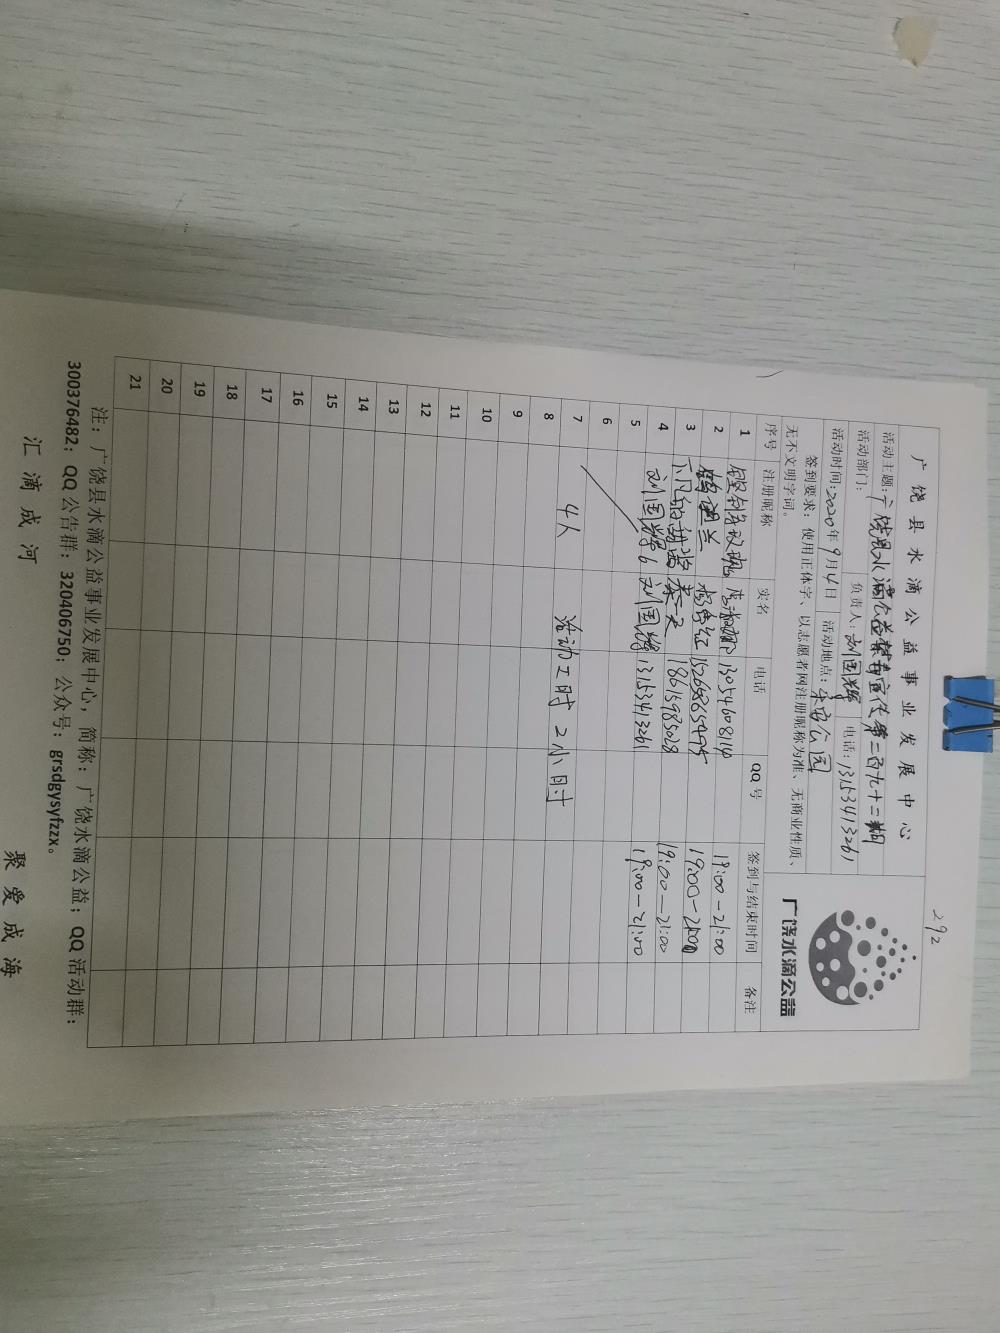 292
广饶县水滴公益事业发展中心
广饶水滴公益
活动主题：广饶县水滴公益禁毒宣传第二百九十二期
活动部门： 负责人：刘国辉 电话：13153413261
活动时间：2020年9月4日 活动地点：乐安公园
签到要求：使用正体字、以志愿者网注册昵称为准、无商业性质、
无不文明字词。
序号 注册昵称 实名 电话 QQ号 签到与结束时间 备注
1 13054608114 19:00—21:00
2 15266865475 19:00—21:00
3 秦天 18615985028 19:00—21:00
4 刘国辉6 刘国辉 13153413261 19:00—21:00
5
6
7 4人 活动工时 2小时
8
9
10
11
12
13
14
15
16
17
18
19
20
21
注：广饶县水滴公益事业发展中心，简称：广饶水滴公益；QQ活动群：
300376482；QQ公告群：320406750；公众号：grsdgysyfzzx。
汇滴成河 聚爱成海